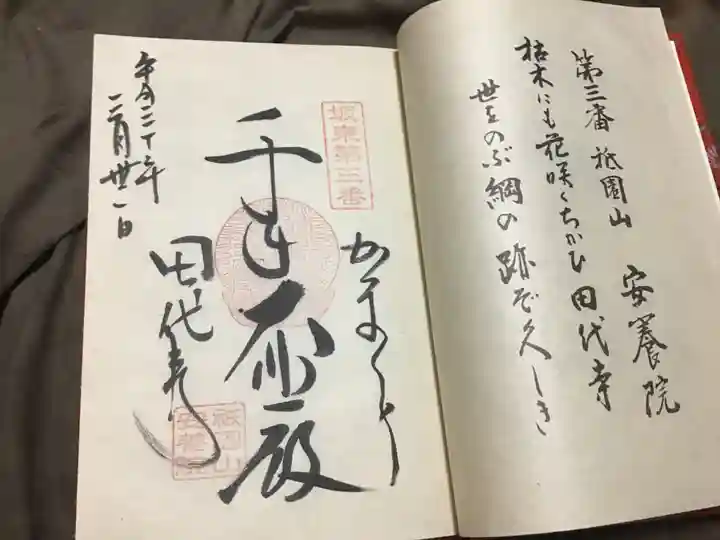 第三番 祇園山 安養院
枯木にも花咲くちかひ田代寺
世をのぶ綱の跡ぞ久しき
坂東第三番
かまくら
千手大殿
田代寺
平成二十年
三月廿一日
祇園山
安養院